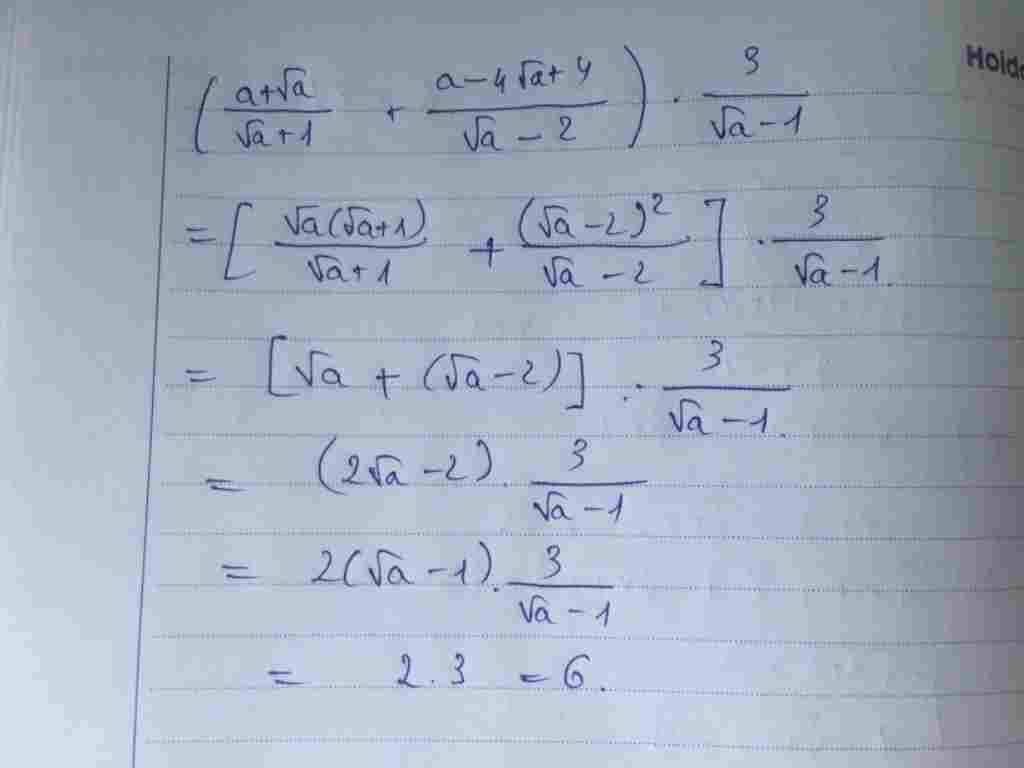 Holde
(a+√a / √a+1 + a−4√a+4 / √a−2) · 3 / √a−1
= [√a(√a+1) / √a+1 + (√a−2)² / √a−2] · 3 / √a−1
= [√a + (√a−2)] · 3 / √a−1
= (2√a−2) · 3 / √a−1
= 2(√a−1) · 3 / √a−1
= 2.3 = 6.